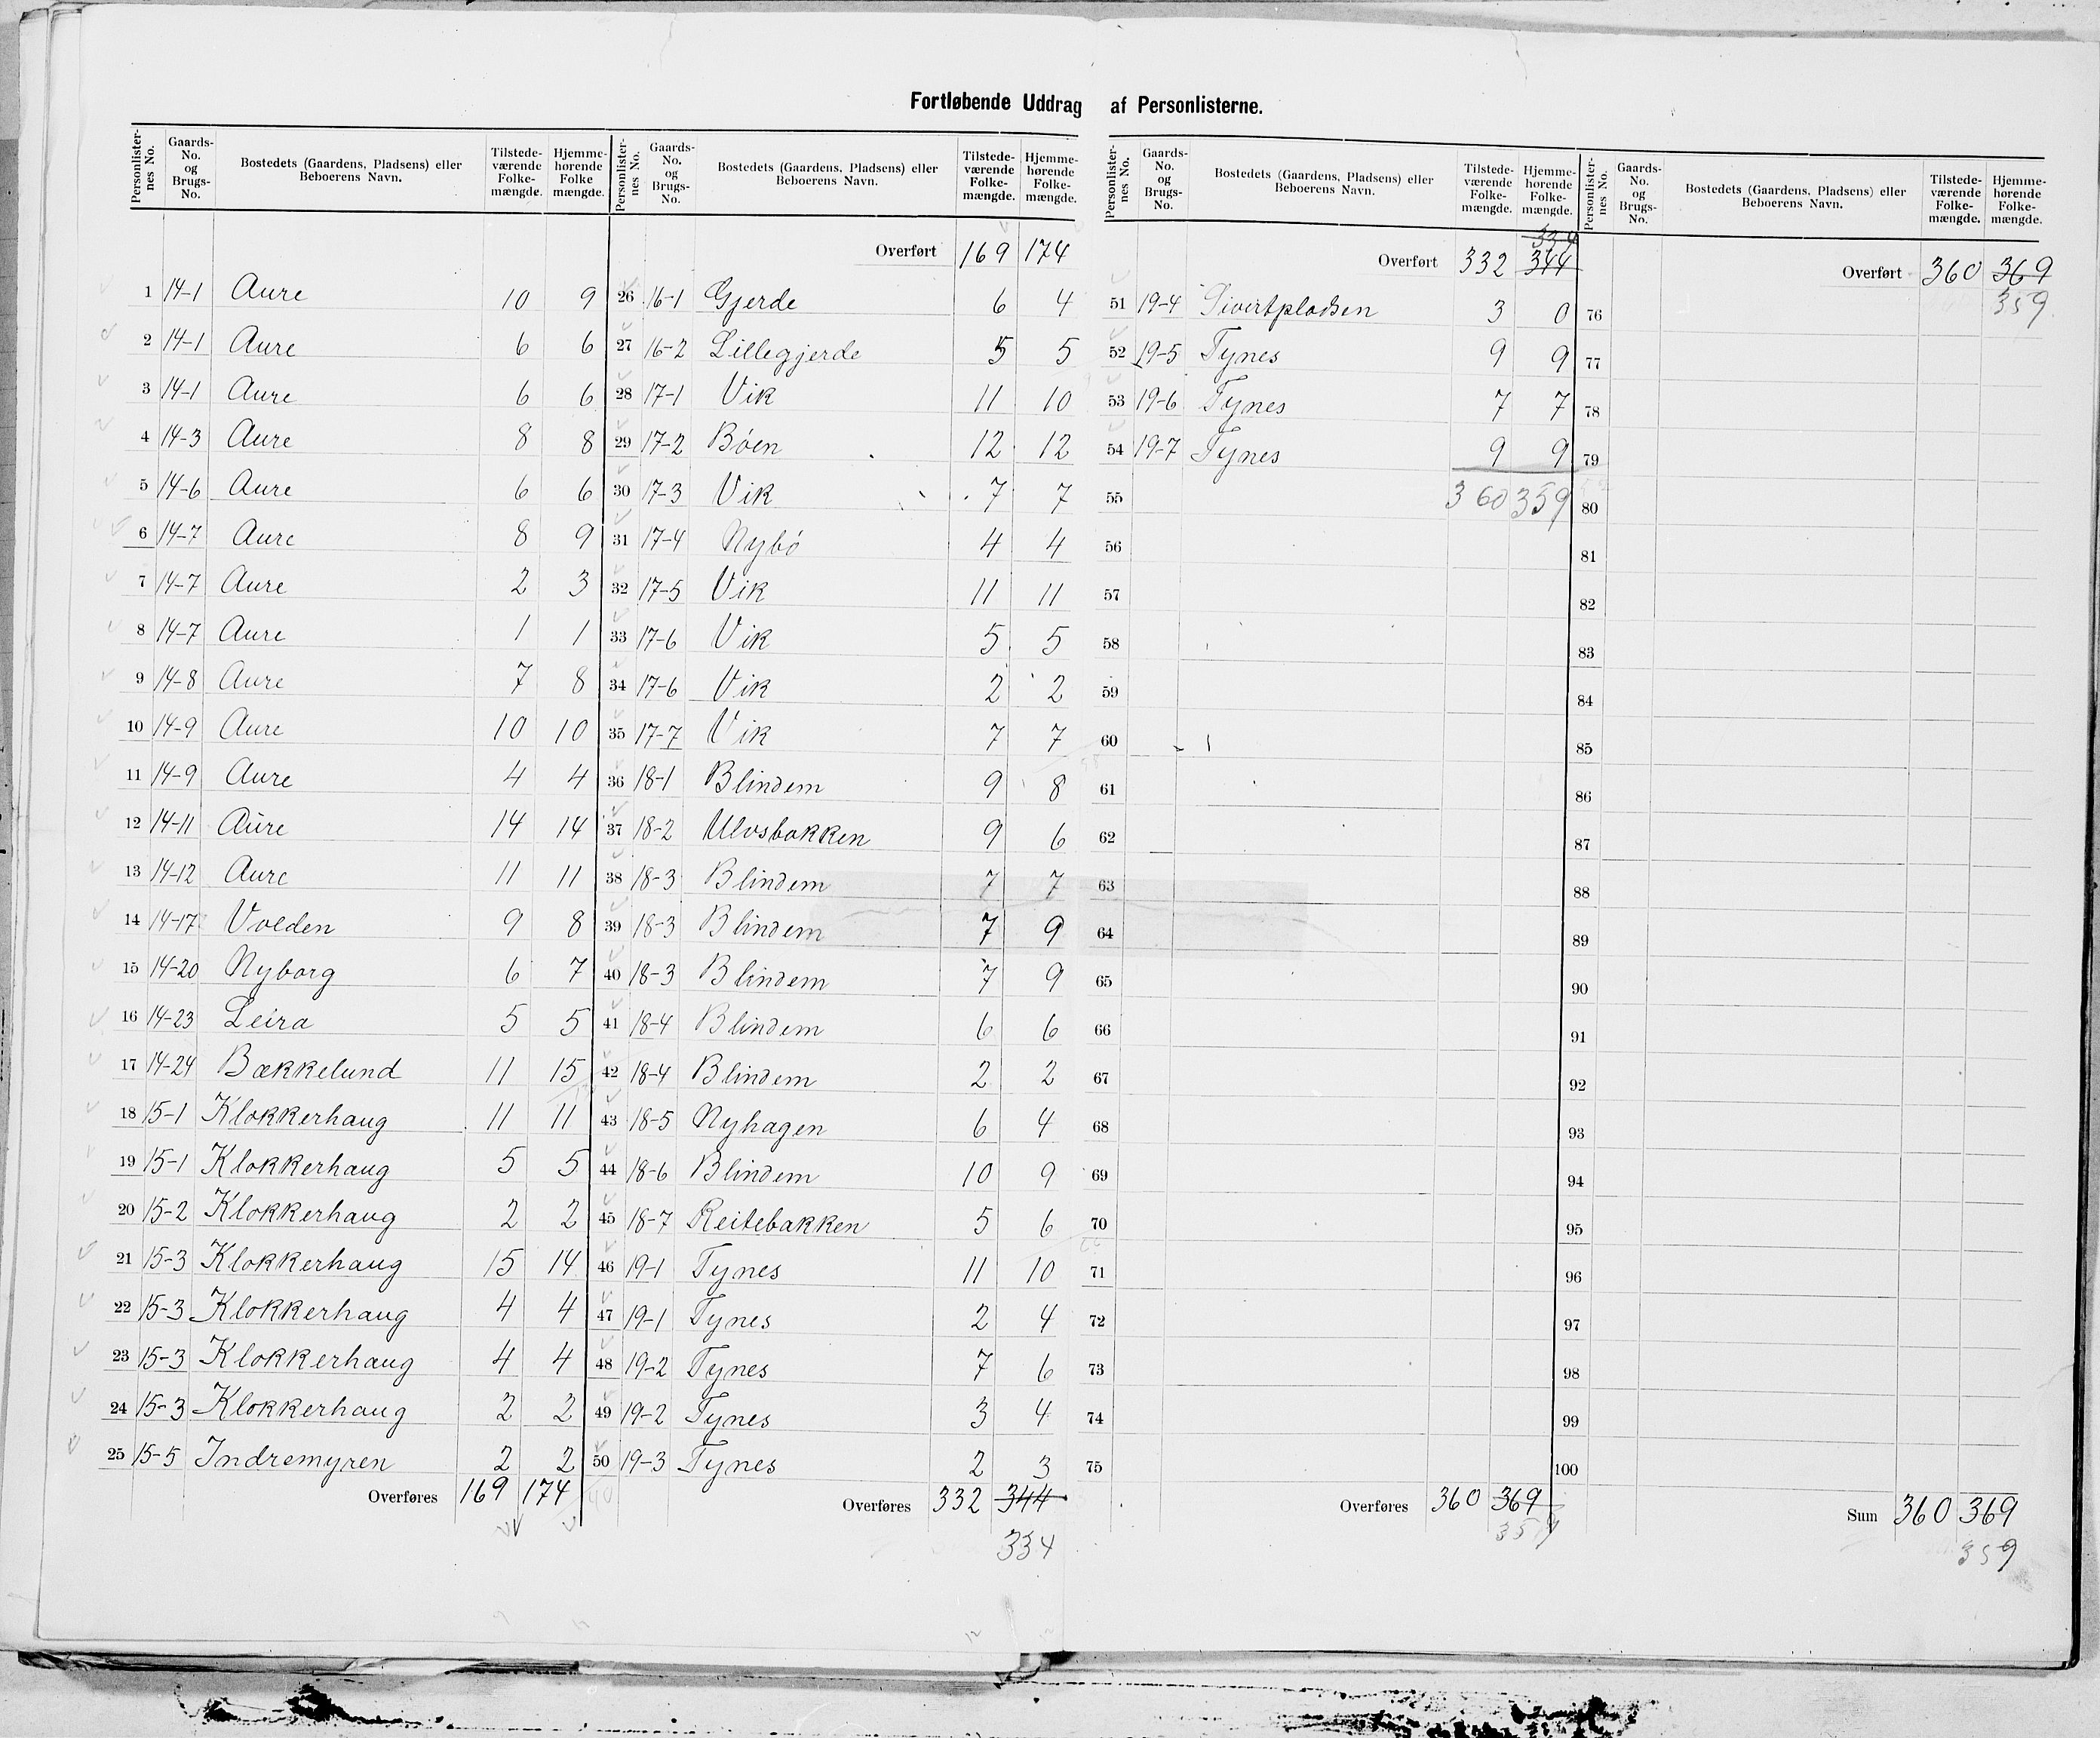 Fortløbende Uddrag af Personlisterne.
Personlister-nes No. | Gaards-No. og Brugs-No. | Bostedets (Gaardens, Pladsens) eller Beboerens Navn. | Tilstede-værende Folke-mængde. | Hjemme-hørende Folke mængde.
1 14-1 Aure 10 9
2 14-1 Aure 6 6
3 14-1 Aure 6 6
4 14-3 Aure 8 8
5 14-6 Aure 6 6
6 14-7 Aure 8 9
7 14-7 Aure 2 3
8 14-7 Aure 1 1
9 14-8 Aure 7 8
10 14-9 Aure 10 10
11 14-9 Aure 4 4
12 14-11 Aure 14 14
13 14-12 Aure 11 11
14 14-17 Volden 9 8
15 14-20 Nyborg 6 7
16 14-23 Leira 5 5
17 14-24 Bækkelund 11 15
18 15-1 Klokkerhaug 11 11
19 15-1 Klokkerhaug 5 5
20 15-2 Klokkerhaug 2 2
21 15-3 Klokkerhaug 15 14
22 15-3 Klokkerhaug 4 4
23 15-3 Klokkerhaug 4 4
24 15-3 Klokkerhaug 2 2
25 15-5 Indremyren 2 2
Overføres 169 174
Personlister-nes No. | Gaards-No. og Brugs-No. | Bostedets (Gaardens, Pladsens) eller Beboerens Navn. | Tilstede-værende Folke-mængde. | Hjemme-hørende Folke-mængde.
Overført 169 174
26 16-1 Gjerde 6 4
27 16-2 Lillegjerde 5 5
28 17-1 Vik 11 10
29 17-2 Bøen 12 12
30 17-3 Vik 7 7
31 17-4 Nybø 4 4
32 17-5 Vik 11 11
33 17-6 Vik 5 5
34 17-6 Vik 2 2
35 17-7 Vik 7 7
36 18-1 Blindem 9 8
37 18-2 Ulvsbakken 9 6
38 18-3 Blindem 7 7
39 18-3 Blindem 7 9
40 18-3 Blindem 7 9
41 18-4 Blindem 6 6
42 18-4 Blindem 2 2
43 18-5 Nyhagen 6 4
44 18-6 Blindem 10 9
45 18-7 Reitebakken 5 6
46 19-1 Tynes 11 10
47 19-1 Tynes 2 4
48 19-2 Tynes 7 6
49 19-2 Tynes 3 4
50 19-3 Tynes 2 3
Overføres 332 344
334
Personlister-nes No. | Gaards-No. og Brugs-No. | Bostedets (Gaardens, Pladsens) eller Beboerens Navn. | Tilstede-værende Folke-mængde. | Hjemme-hørende Folke-mængde.
334
Overført 332 344
51 19-4 Sivertpladsen 3 0
52 19-5 Tynes 9 9
53 19-6 Tynes 7 7
54 19-7 Tynes 9 9
55 360 359
56
57
58
59
60
61
62
63
64
65
66
67
68
69
70
71
72
73
74
75
Overføres 360 369
359
Personlister-nes No. | Gaards-No. og Brugs-No. | Bostedets (Gaardens, Pladsens) eller Beboerens Navn. | Tilstede-værende Folke-mængde. | Hjemme-hørende Folke-mængde.
Overført 360 369
359
76
77
78
79
80
81
82
83
84
85
86
87
88
89
90
91
92
93
94
95
96
97
98
99
100
Sum 360 369
359